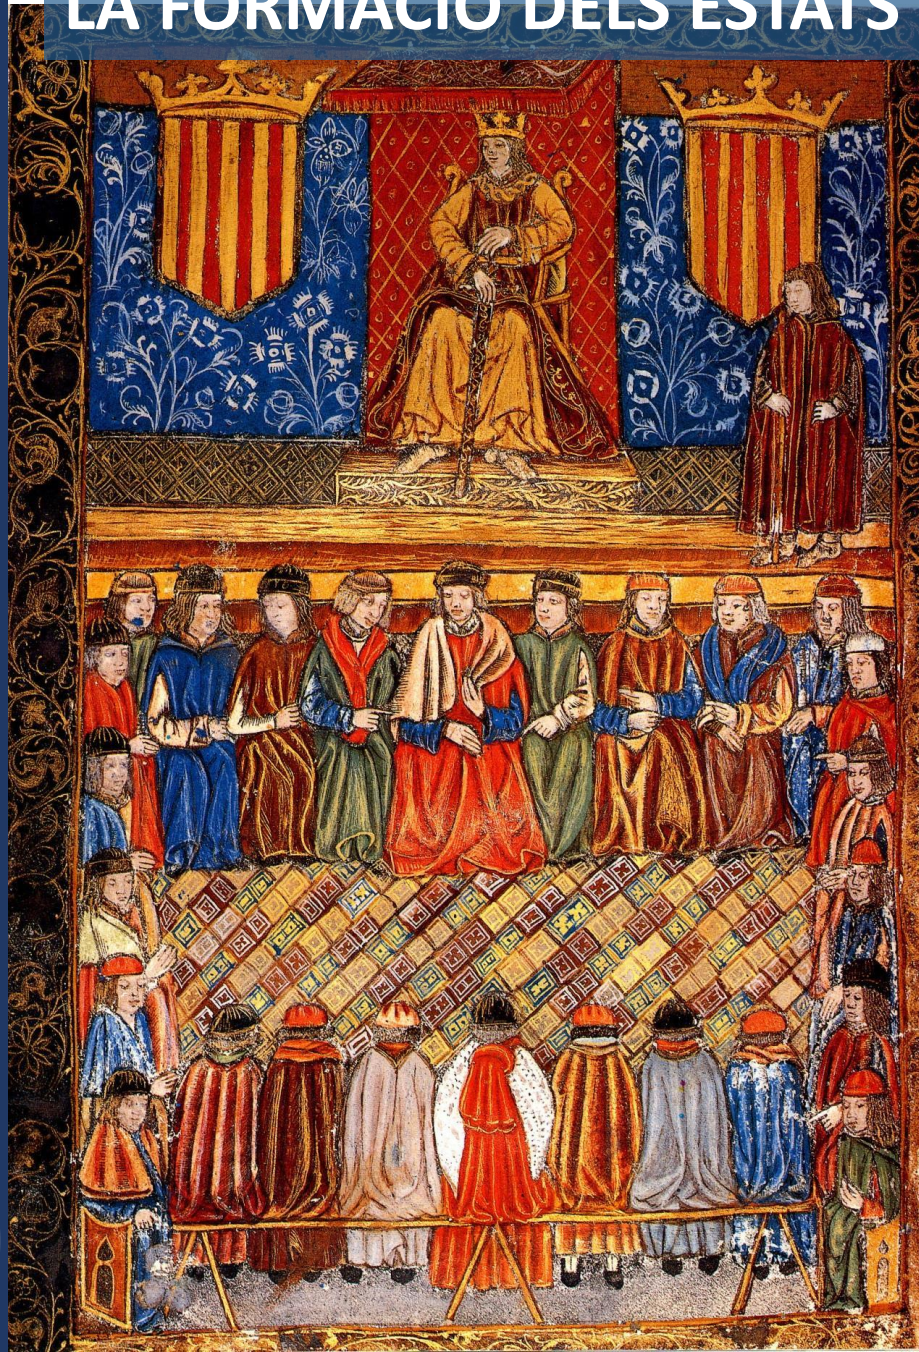 LA FORMACIÓ DELS ESTATS